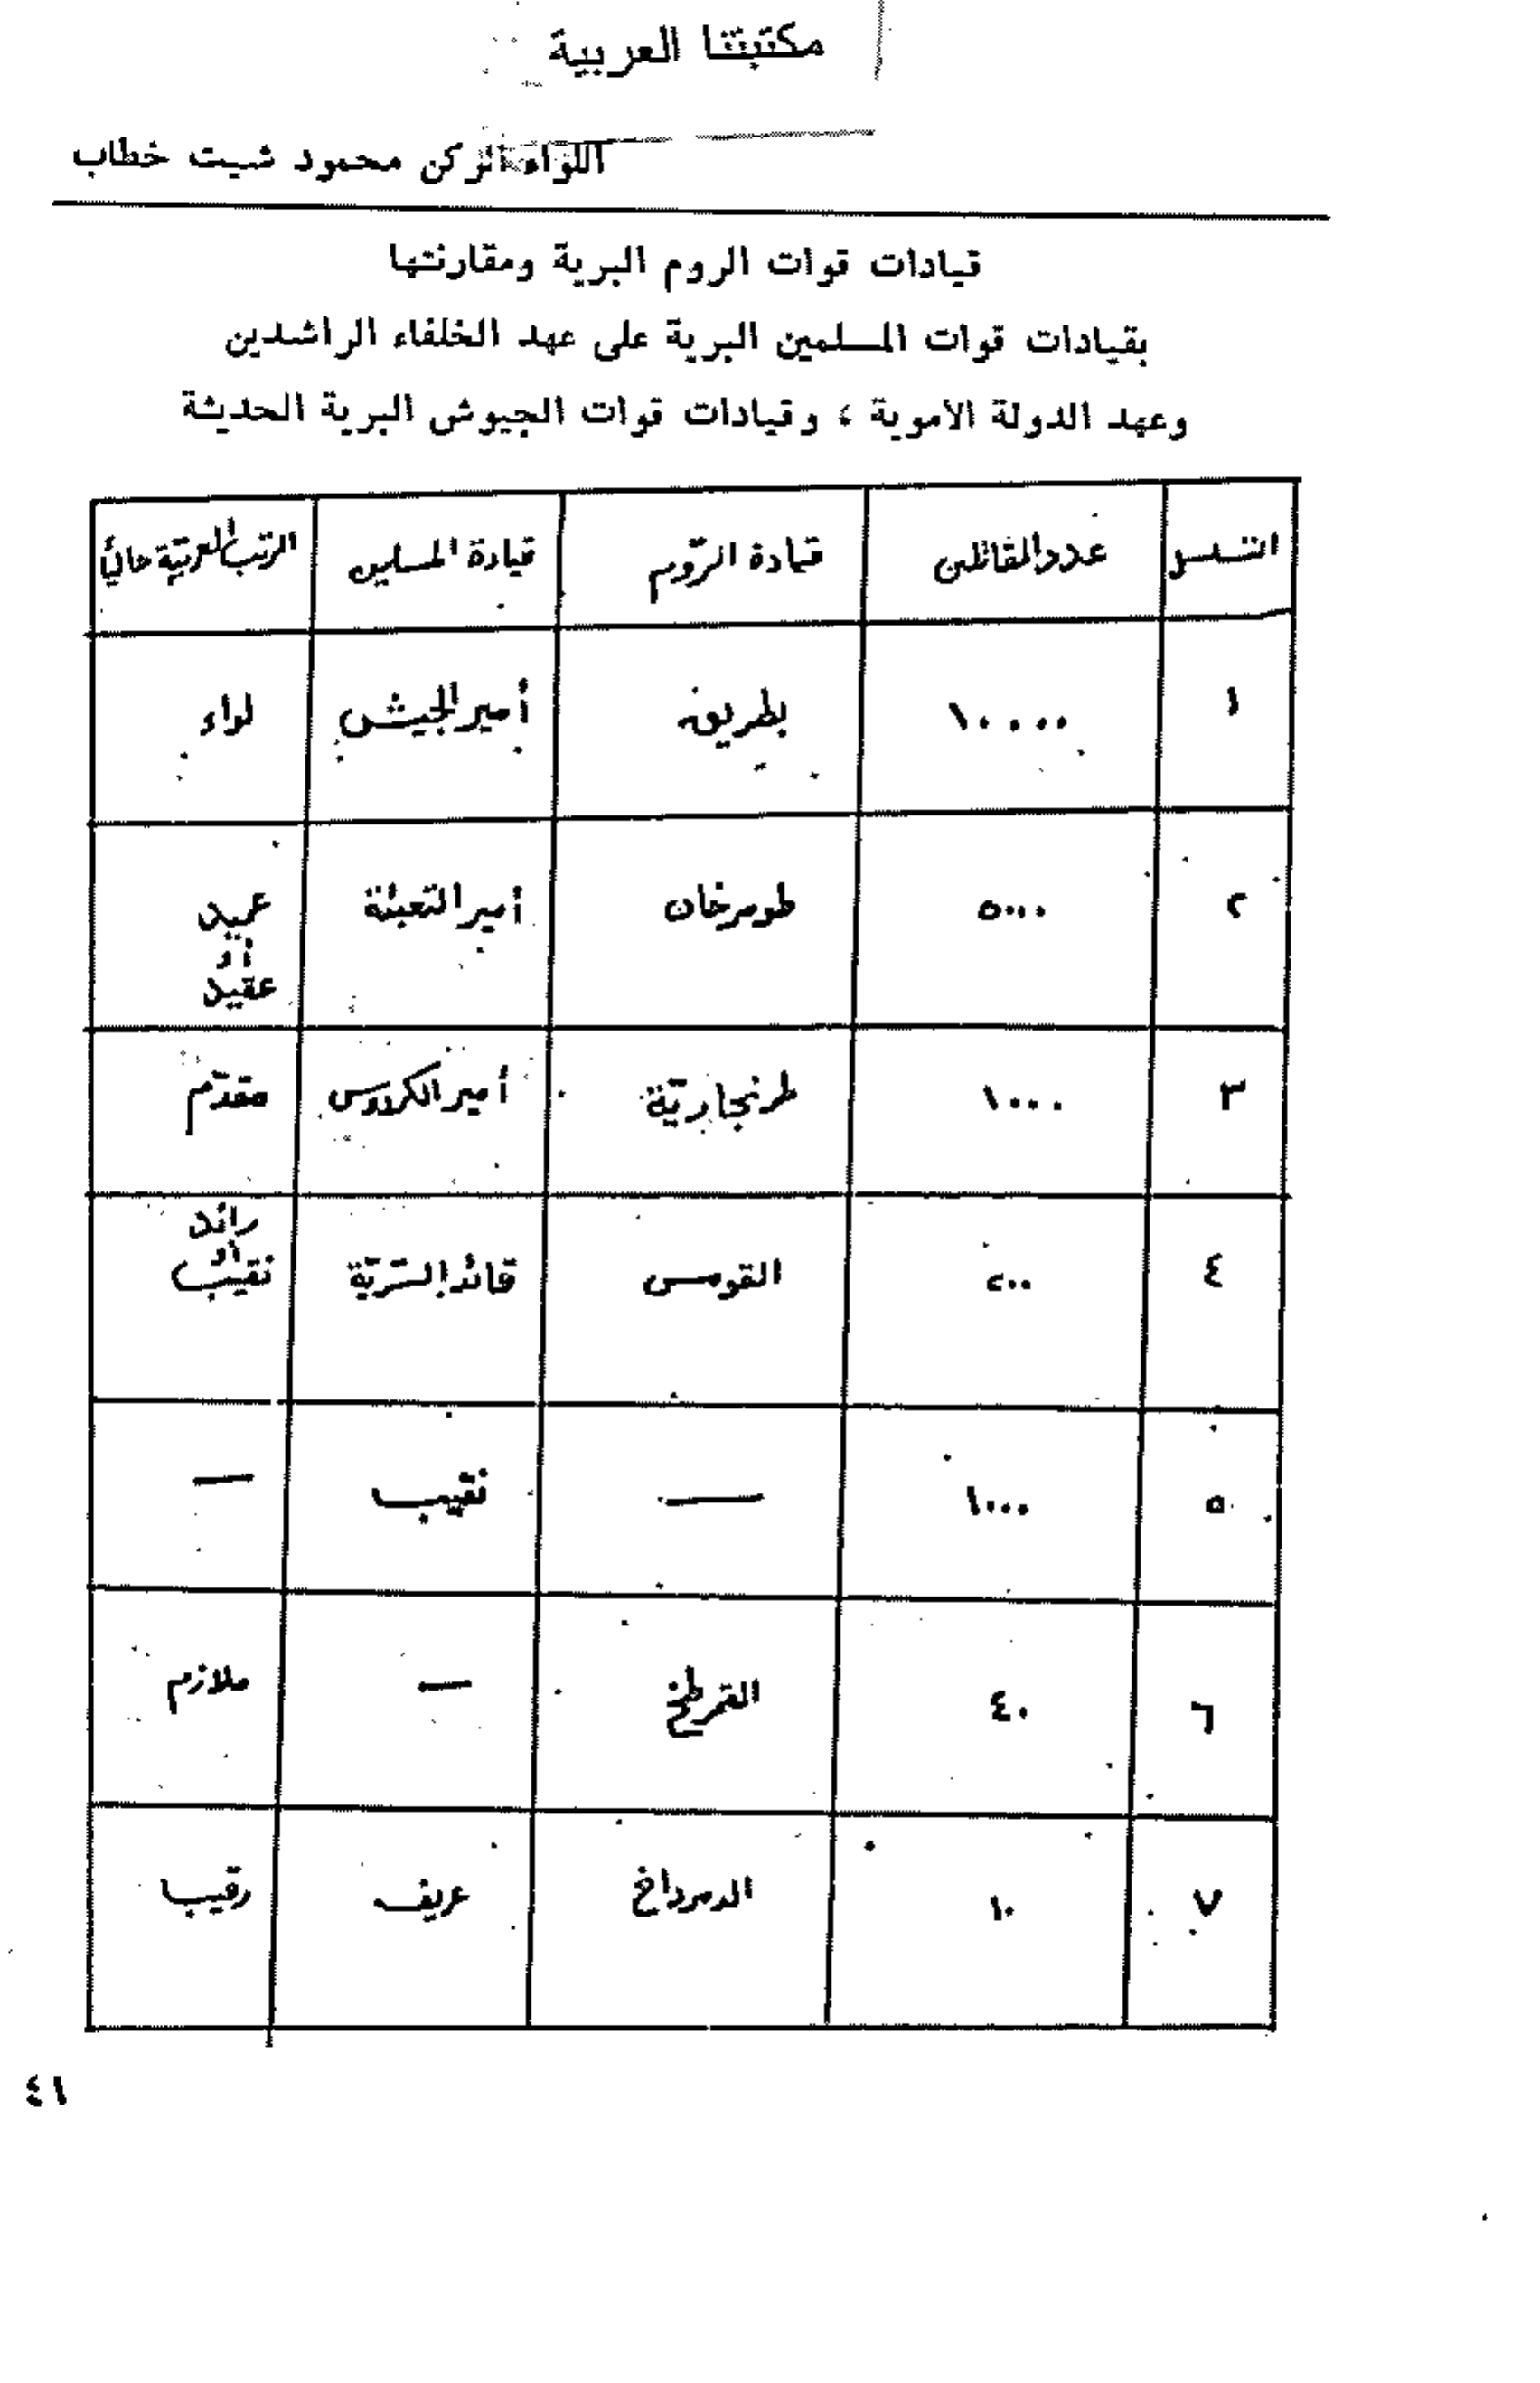 مكتبتنا العربية
اللواء الركن محمود شيت خطاب
قيادات قوات الروم البرية ومقارنتها
بقيادات قوات المسلمين البرية على عهد الخلفاء الراشدين
وعهد الدولة الاموية ، وقيادات قوات الجيوش البرية الحديثة
التسلسل عدد المقاتلين قيادة الرّوم قيادة المسلمين الرتب العربيّة حاليًّا
١ ١٠٠٠٠ بطريق أمير الجيش لواء
٢ ٥٠٠٠ طومرخان أمير التعبئة عميد
أو
عقيد
٣ ١٠٠٠ طرنجاريّة أمير الكردوس مقدّم
٤ ٢٠٠ القومس قائد السّريّة رائد
أو
نقيب
٥ ١٠٠٠ — نقيب —
٦ ٤٠ القمرطخ — ملازم
٧ ١٠ الدمرداخ عريف رقيب
٤١